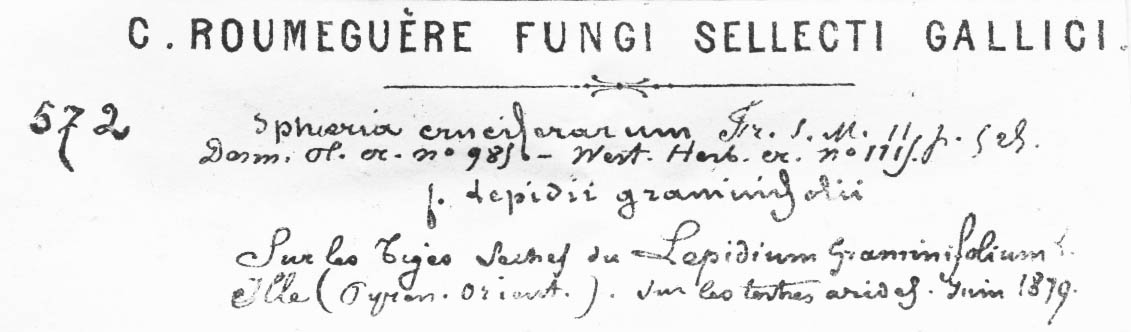 C. ROUMEGUÈRE FUNGI SELLECTI GALLICI.
572 Sphæria cruciferarum Fr. S. M. II p. 525.
Desm. Pl. cr. no 985 - West. Herb. cr. no 1115.
f. Lepidii graminifolii
Sur les Tiges seches du Lepidium Graminifolium L.
Ille (Pyren. Orient.). Sur les tertres arides. Juin 1879.